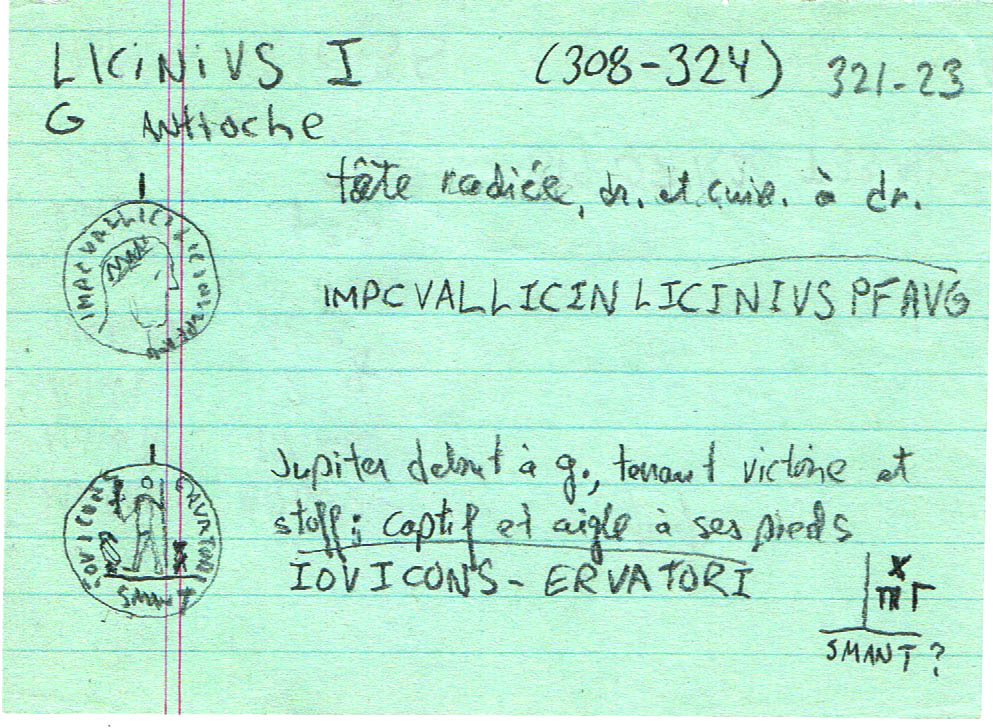 LICINIUS I (308-324) 321-23
G ANTIOCHE
tête radiée, dr. et cuir. à dr.
IMPCVALLICINLICINIUSPFAVG
IMPCVALLICINLICINIUSPFAVG
Jupiter debout à g., tenant victoire et
staff; captif et aigle à ses pieds
IOVICONS - ERVATORI
IOVICONS ERVATORI
SMANT
X
III Γ
SMANT?